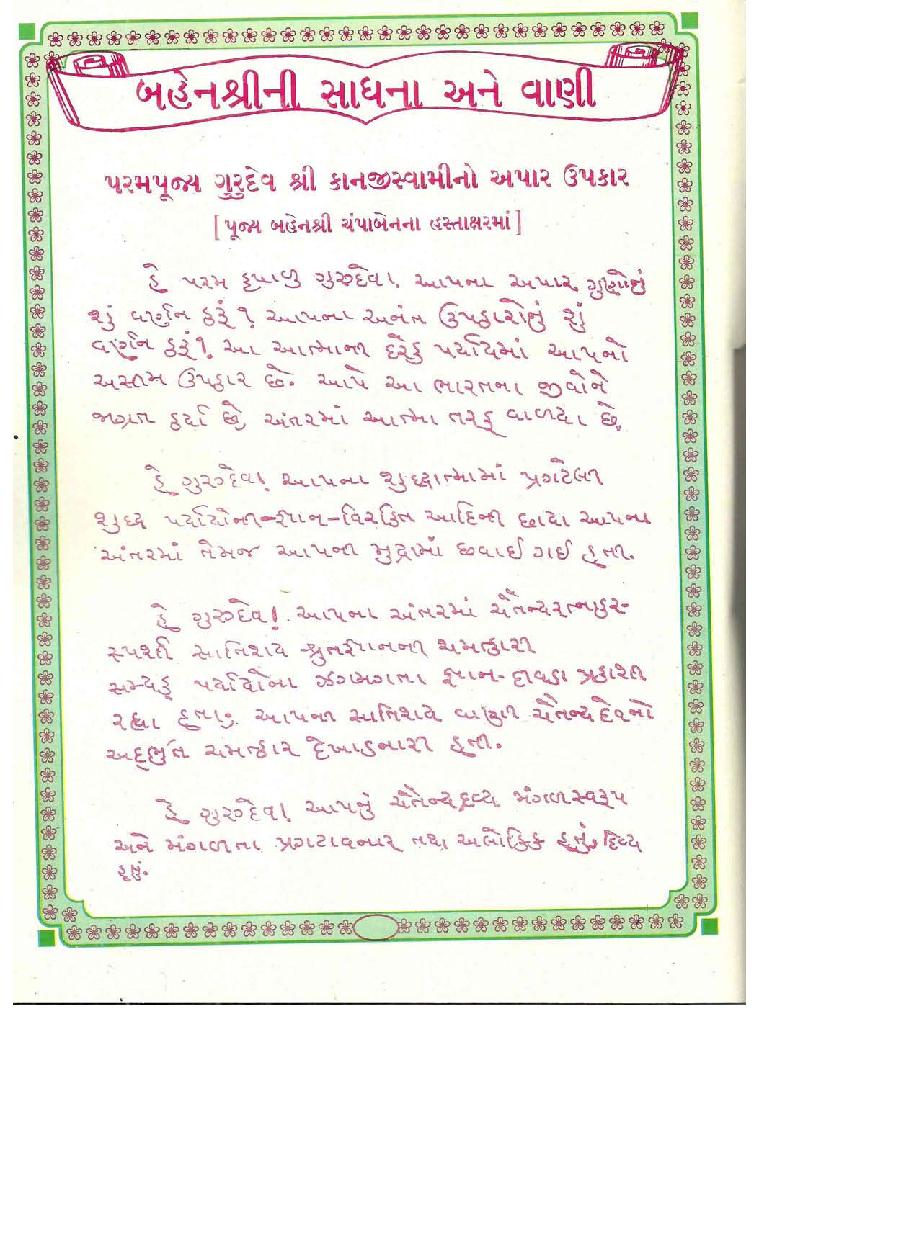 બહેનશ્રીની સાધના અને વાણી
પરમપૂજ્ય ગુરુદેવ શ્રી કાનજીસ્વામીનો અપાર ઉપકાર
[પૂજ્ય બહેનશ્રી ચંપાબેનના હસ્તાક્ષરમાં]
હે પરમ કૃપાળુ ગુરુદેવ! આપના અપાર ગુણોનું
શું વર્ણન કરૂં? આપના અનંત ઉપકારોનું શું
વર્ણન કરૂં? આ આત્માની દરેક પર્યાયમાં આપનો
અસીમ ઉપકાર છે. આપે આ ભારતના જીવોને
જાગ્રત કર્યા છે, અંતરમાં આત્મા તરફ વાળ્યા છે.
હે ગુરુદેવ! આપના શુદ્ધાત્મામાં પ્રગટેલી
શુદ્ધ પર્યાયોની-જ્ઞાન-વિરક્તિ આદિની છાયા આપના
અંતરમાં તેમજ આપની મુદ્રામાં છવાઈ ગઈ હતી.
હે ગુરુદેવ! આપના અંતરમાં ચૈતન્યરત્નાકર-
સ્પર્શી સાતિશય શ્રુતજ્ઞાનની ચમત્કારી
સમ્યક્ પર્યાયોના ઝગમગતા જ્ઞાન-દીવડા પ્રકાશી
રહ્યા હતા; આપની સાતિશય વાણી ચૈતન્યદેવનો
અદ્ભુત ચમત્કાર દેખાડનારી હતી.
હે ગુરુદેવ! આપનું ચૈતન્યદ્રવ્ય મંગળસ્વરૂપ
અને મંગળતા પ્રગટાવનાર તથા અલૌકિક હતું, દિવ્ય
હતું.